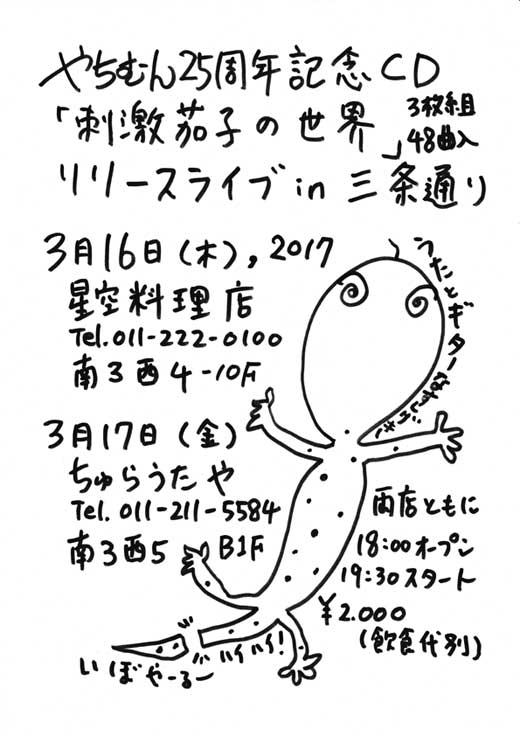 やちむん25周年記念CD
「刺激茄子の世界」3枚組
48曲入
リリースライブin三条通り
3月16日(木), 2017
星空料理店
Tel.011-222-0100
南3西4-10F
3月17日(金)
ちゅらうたや
Tel.011-211-5584
南3西5 B1F
うたとギター
両店ともに
18:00オープン
19:30スタート
¥2.000
(飲食代別)
ハイハイ!
いぼやーるー